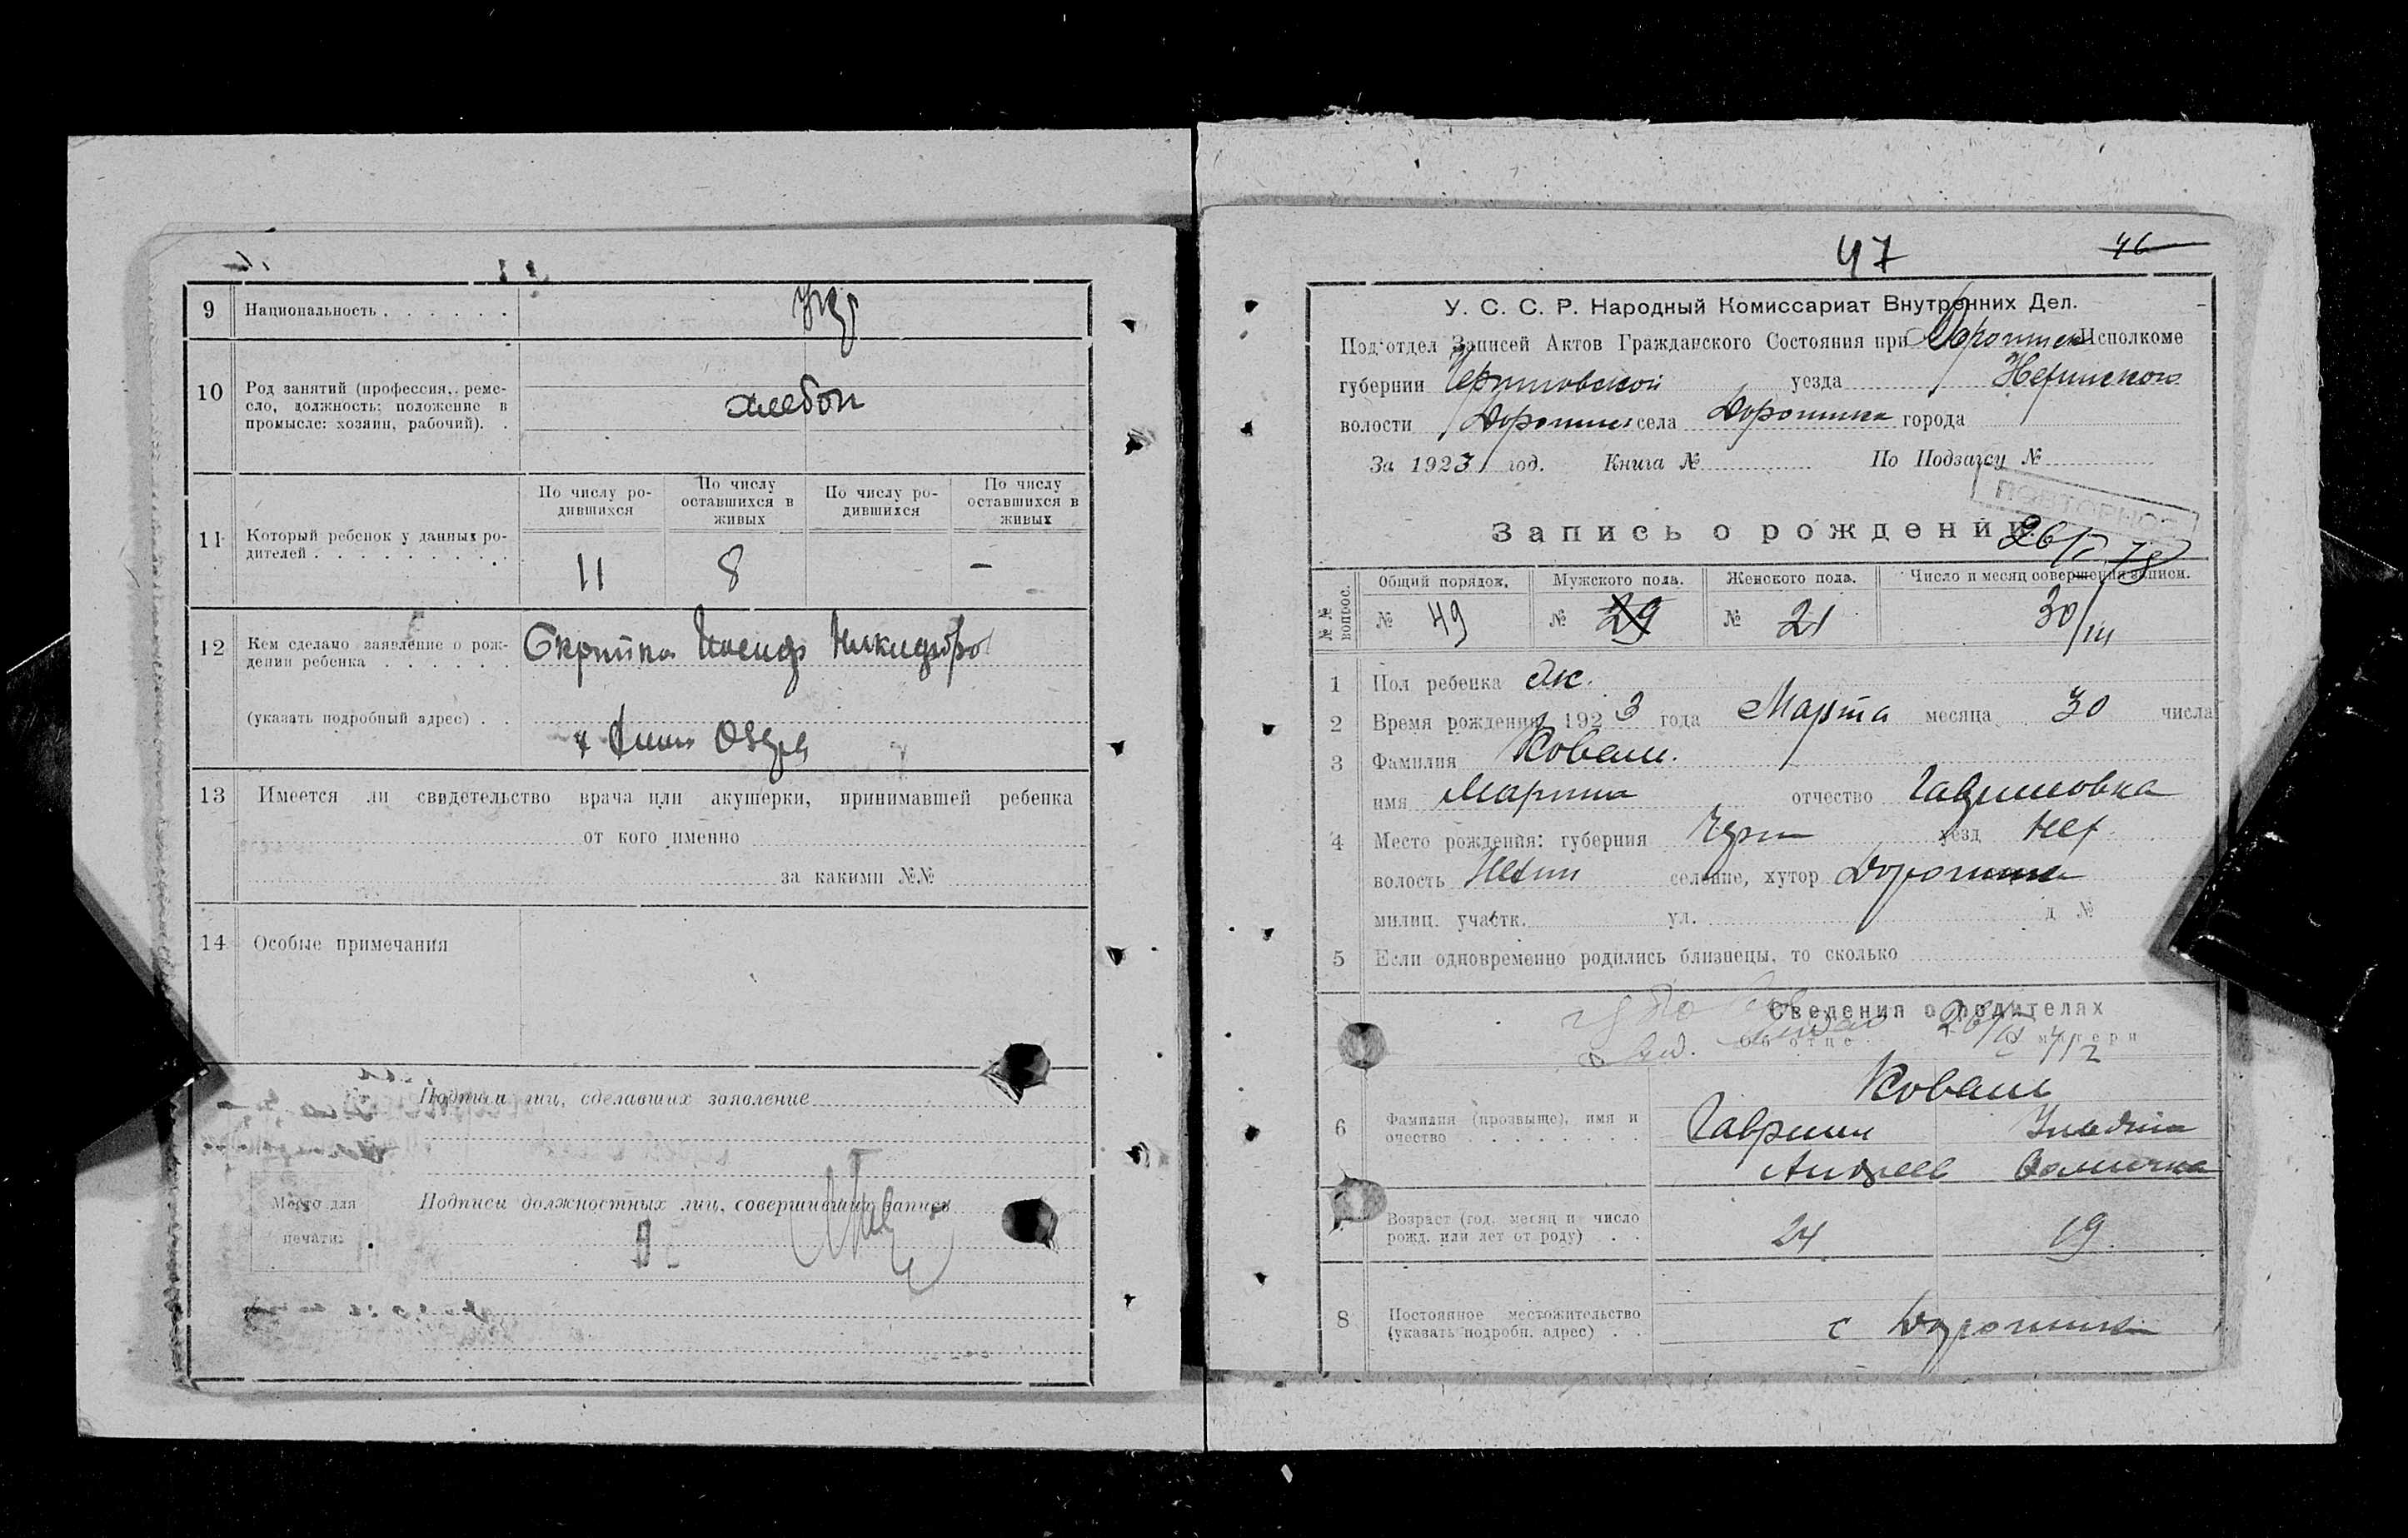 9 Национальность . . . . . . Укр
10 Род занятий (профессия, реме-
сло, должность: положение в
промысле: хозяин, рабочий). .
хлебоп
11 Который ребенок у данных ро-
дителей . . . . . . . . .
По числу ро-
дившихся
По числу
оставшихся в
живых
По числу ро-
дившихся
По числу
оставшихся в
живых
11 8 -
12 Кем сделано заявление о рож-
дении ребенка . . . . . . Скрипка Иосиф Никифоро
(указать подробный адрес) . .
13 Имеется ли свидетельство врача или акушерки, принимавшей ребенка
от кого именно
за какими №№
14 Особые примечания
Подписи лиц, сделавших заявление
Место для
печати:
Подписи должностных лиц, совершивших запись
47 46
У. С. С. Р. Народный Комиссариат Внутренних Дел.
Под'отдел Записей Актов Гражданского Состояния при Дорогинск Исполкоме
губернии Черниговской уезда Нежинского
волости Дорогинс села Дорогинка города
За 1923 год. Книга № По Подзагсу №
ПОВТОРНОЕ
Запись о рождении.
№№ вопрос.
Общий порядок. Мужского пола. Женского пола. Число и месяц совершения записи.
№ 49 № 29 № 21 30/III
1 Пол ребенка Ж.
2 Время рождения 1923 года Марта месяца 30 числа
3 Фамилия Коваль.
имя Марина отчество Гавриловна
4 Место рождения: губерния Черн уезд Неж
волость Нежин селение, хутор Дорогинка
милиц. участк. ул. д №
5 Если одновременно родились близнецы, то сколько
Сведения о родителях
Об отце. матери
Коваль
6 Фамилия (прозвыще), имя и
очество . . . . . . . . Гавриил
Андреев
7 Возраст (год, месяц и число
рожд. или лет от роду) . . 24 19
8 Постоянное местожительство
(указать подробн. адрес) . . с Дорогинка